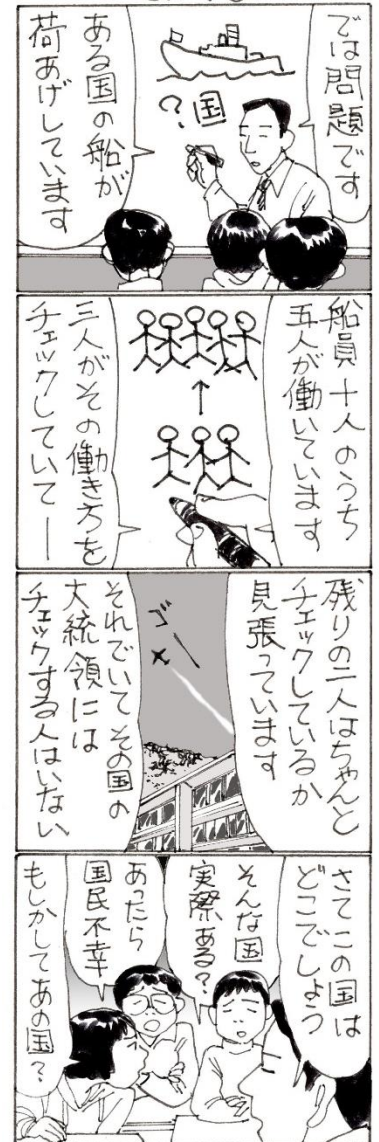 では問題です
?国
ある国の船が
荷あげしています
船員十人のうち
五人が働いています
三人がその働き方を
チェックしていてー
残りの二人はちゃんと
チェックしているか
見張っています
ゴー
それでいてその国の
大統領には
チェックする人はいない
さてこの国は
どこでしょう
そんな国
実際ある?
あったら
国民不幸
もしかしてあの国?